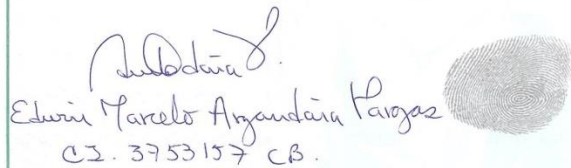 Edwin Marcelo Argandoña Vargas
CI. 3753157 CB.